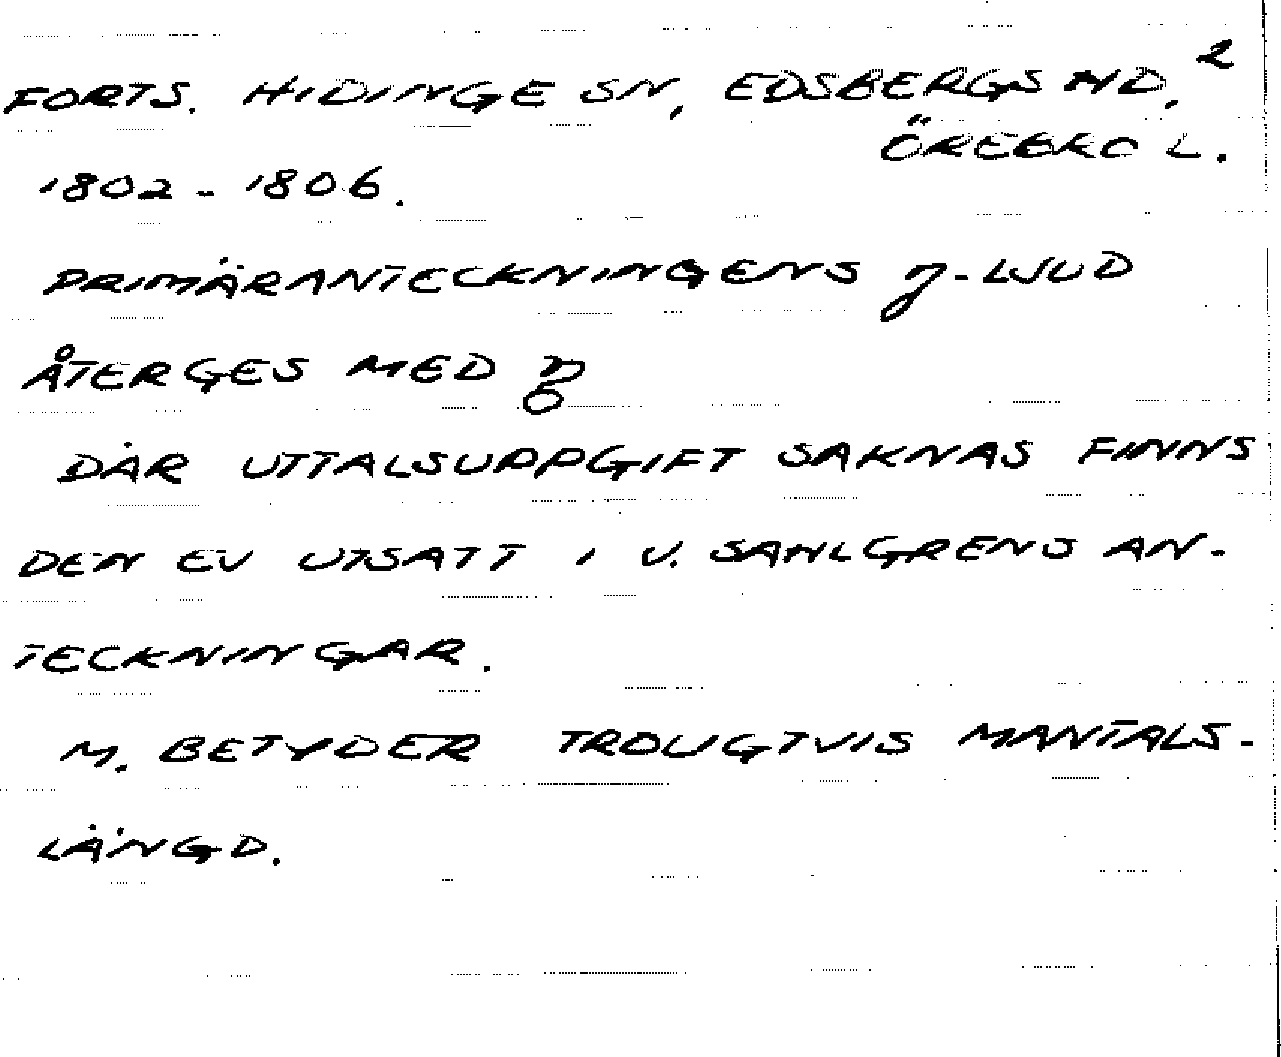 2
FORTS. HIDINGE SN, EDSBERGS HD,
ÖREBRO L.
1802 - 1806.
PRIMÄRANTECKNINGENS ŋ-LJUD
ÅTERGES MED
DÄR UTTALSUPPGIFT SAKNAS FINNS
DEN EV UTSATT I V. SAHLGRENS AN-
TECKNINGAR.
M. BETYDER TROLIGTVIS MANTALS-
LÄNGD.